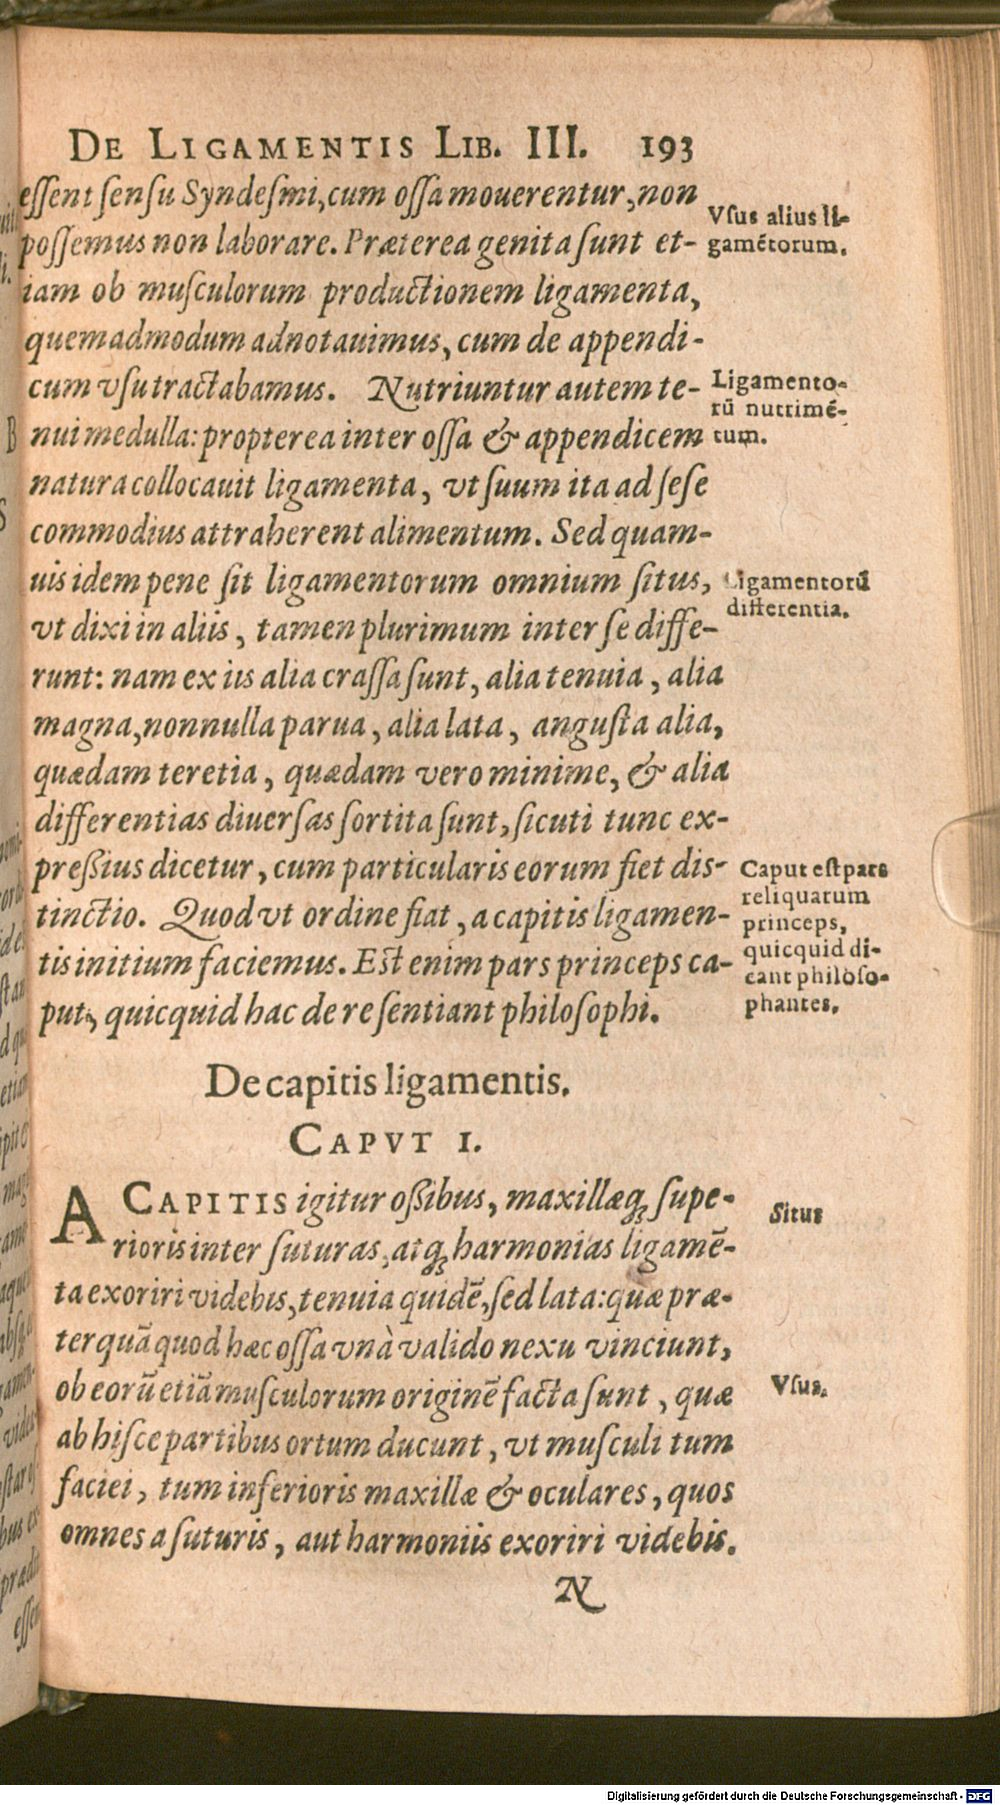 DE LIGAMENTIS LIB. III. 193
essent sensu Syndesmi, cum ossa mouerentur, non
possemus non laborare. Præterea genita sunt et-
iam ob musculorum productionem ligamenta,
quemadmodum adnotauimus, cum de appendi-
cum vsu tractabamus. Nutriuntur autem te-
nui medulla: propterea inter ossa & appendicem
natura collocauit ligamenta, vt suum ita ad sese
commodius attraherent alimentum. Sed quam-
uis idem pene sit ligamentorum omnium situs,
vt dixi in aliis, tamen plurimum inter se diffe-
runt: nam ex iis alia crassa sunt, alia tenuia, alia
magna, nonnulla parua, alia lata, angusta alia,
quædam teretia, quædam vero minime, & alia
differentias diuersas sortita sunt, sicuti tunc ex-
preßius dicetur, cum particularis eorum fiet dis-
tinctio. Quod vt ordine fiat, a capitis ligamen-
tis initium faciemus. Est enim pars princeps ca-
put, quicquid hac de re sentiant philosophi.
Vsus alius li-
gamētorum.
Ligamento-
rū nutrimē-
tum.
Ligamentorū
differentia.
Caput est pars
reliquarum
princeps,
quicquid di-
cant philoso-
phantes.
De capitis ligamentis.
CAPVT I.
A CAPITIS igitur oßibus, maxillæq; supe-
rioris inter suturas, atq; harmonias ligamē-
ta exoriri videbis, tenuia quidē, sed lata: quæ præ-
terquā quod hæc ossa vnà valido nexu vinciunt,
ob eorū etiā musculorum originē facta sunt, quæ
ab hisce partibus ortum ducunt, vt musculi tum
faciei, tum inferioris maxillæ & oculares, quos
omnes a suturis, aut harmoniis exoriri videbis.
Situs
Vsus.
N
Digitalisierung gefördert durch die Deutsche Forschungsgemeinschaft - DFG